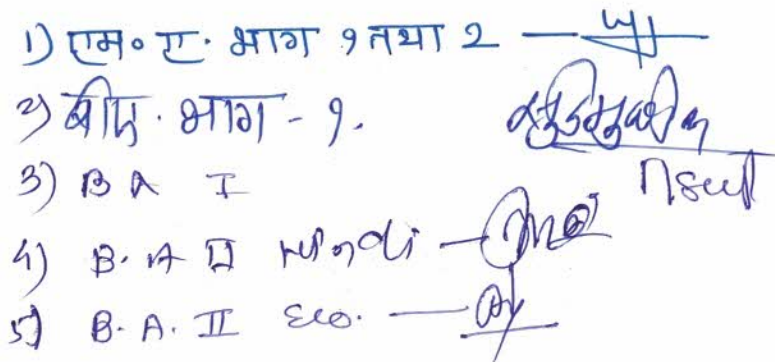 1) एम० ए. भाग १ तथा २ —
2) बीए. भाग - १.
3) B A I
4) B. A II Hindi —
5) B. A. II Eco. —